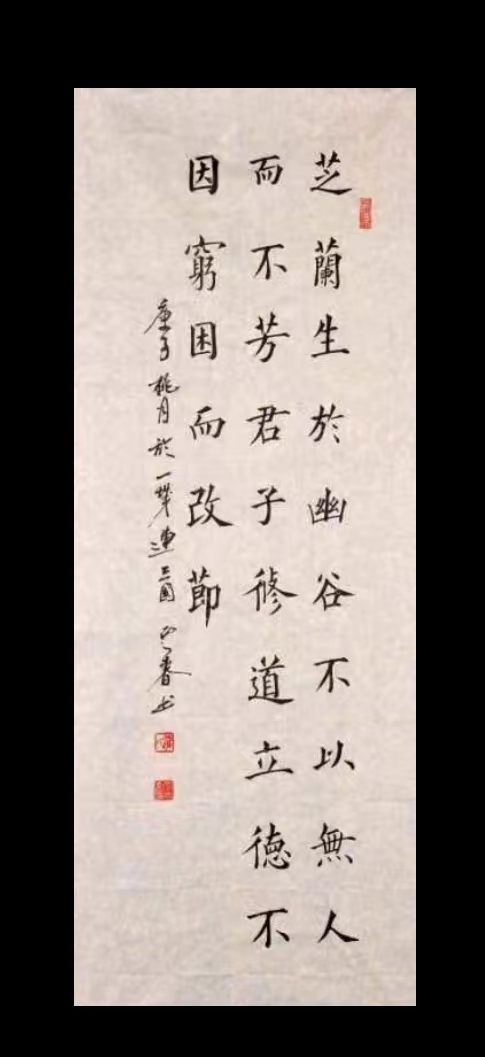 芝蘭生於幽谷不以無人
而不芳君子修道立德不
因窮困而改節
庚子桃月於一犂連三園 春书